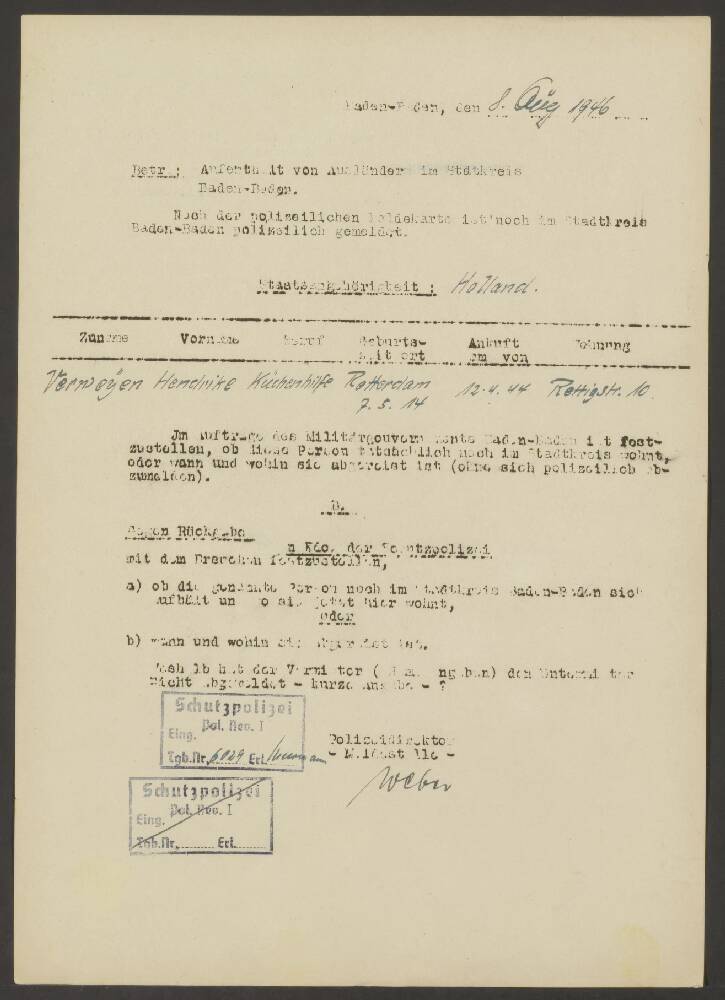 Baden-Baden, den 8. Aug 1946
Betr.: Aufenthalt von Ausländer im Stdtkreis
Baden-Baden.
Nach der polizeilichen Meldekarte ist noch im Stadtkreis
Baden-Baden polizeilich gemeldet.
Staatsangehörigkeit : Holland.
Zuname Vorname Beruf Geburts- Ankunft Wohnung
zeit ort am von
Verweyen Hendrike Küchenhilfe Rotterdam 12.4.44 Rettigstr. 10.
7.5.14
Jm Auftrage des Militärgouvernements Baden-Baden ist fest-
zustellen, ob diese Person tatsächlich noch im Stadtkreis wohnt,
oder wann und wohin sie abgereist ist (ohne sich polizeilich ab-
zumelden).
B.
Gegen Rückgabe
n Kdo. der Schutzpolizei
mit dem Ersuchen festzustellen,
a) ob die genannte Person noch im Stadtkreis Baden-Baden sich
aufhält und wo sie jetzt hier wohnt,
oder
b) wann und wohin sie abgereist ist.
Weshalb hat der Vermieter ( ) den Untermieter
nicht abgemeldet - kurze Angabe - ?
Schutzpolizei
Pol. Rev. I
Eing.
Tgb.Nr. 6029 Erl.
Polizeidirektor
- Meldestelle -
Weber
Schutzpolizei
Pol. Rev. I
Eing.
Tgb.Nr. Erl.